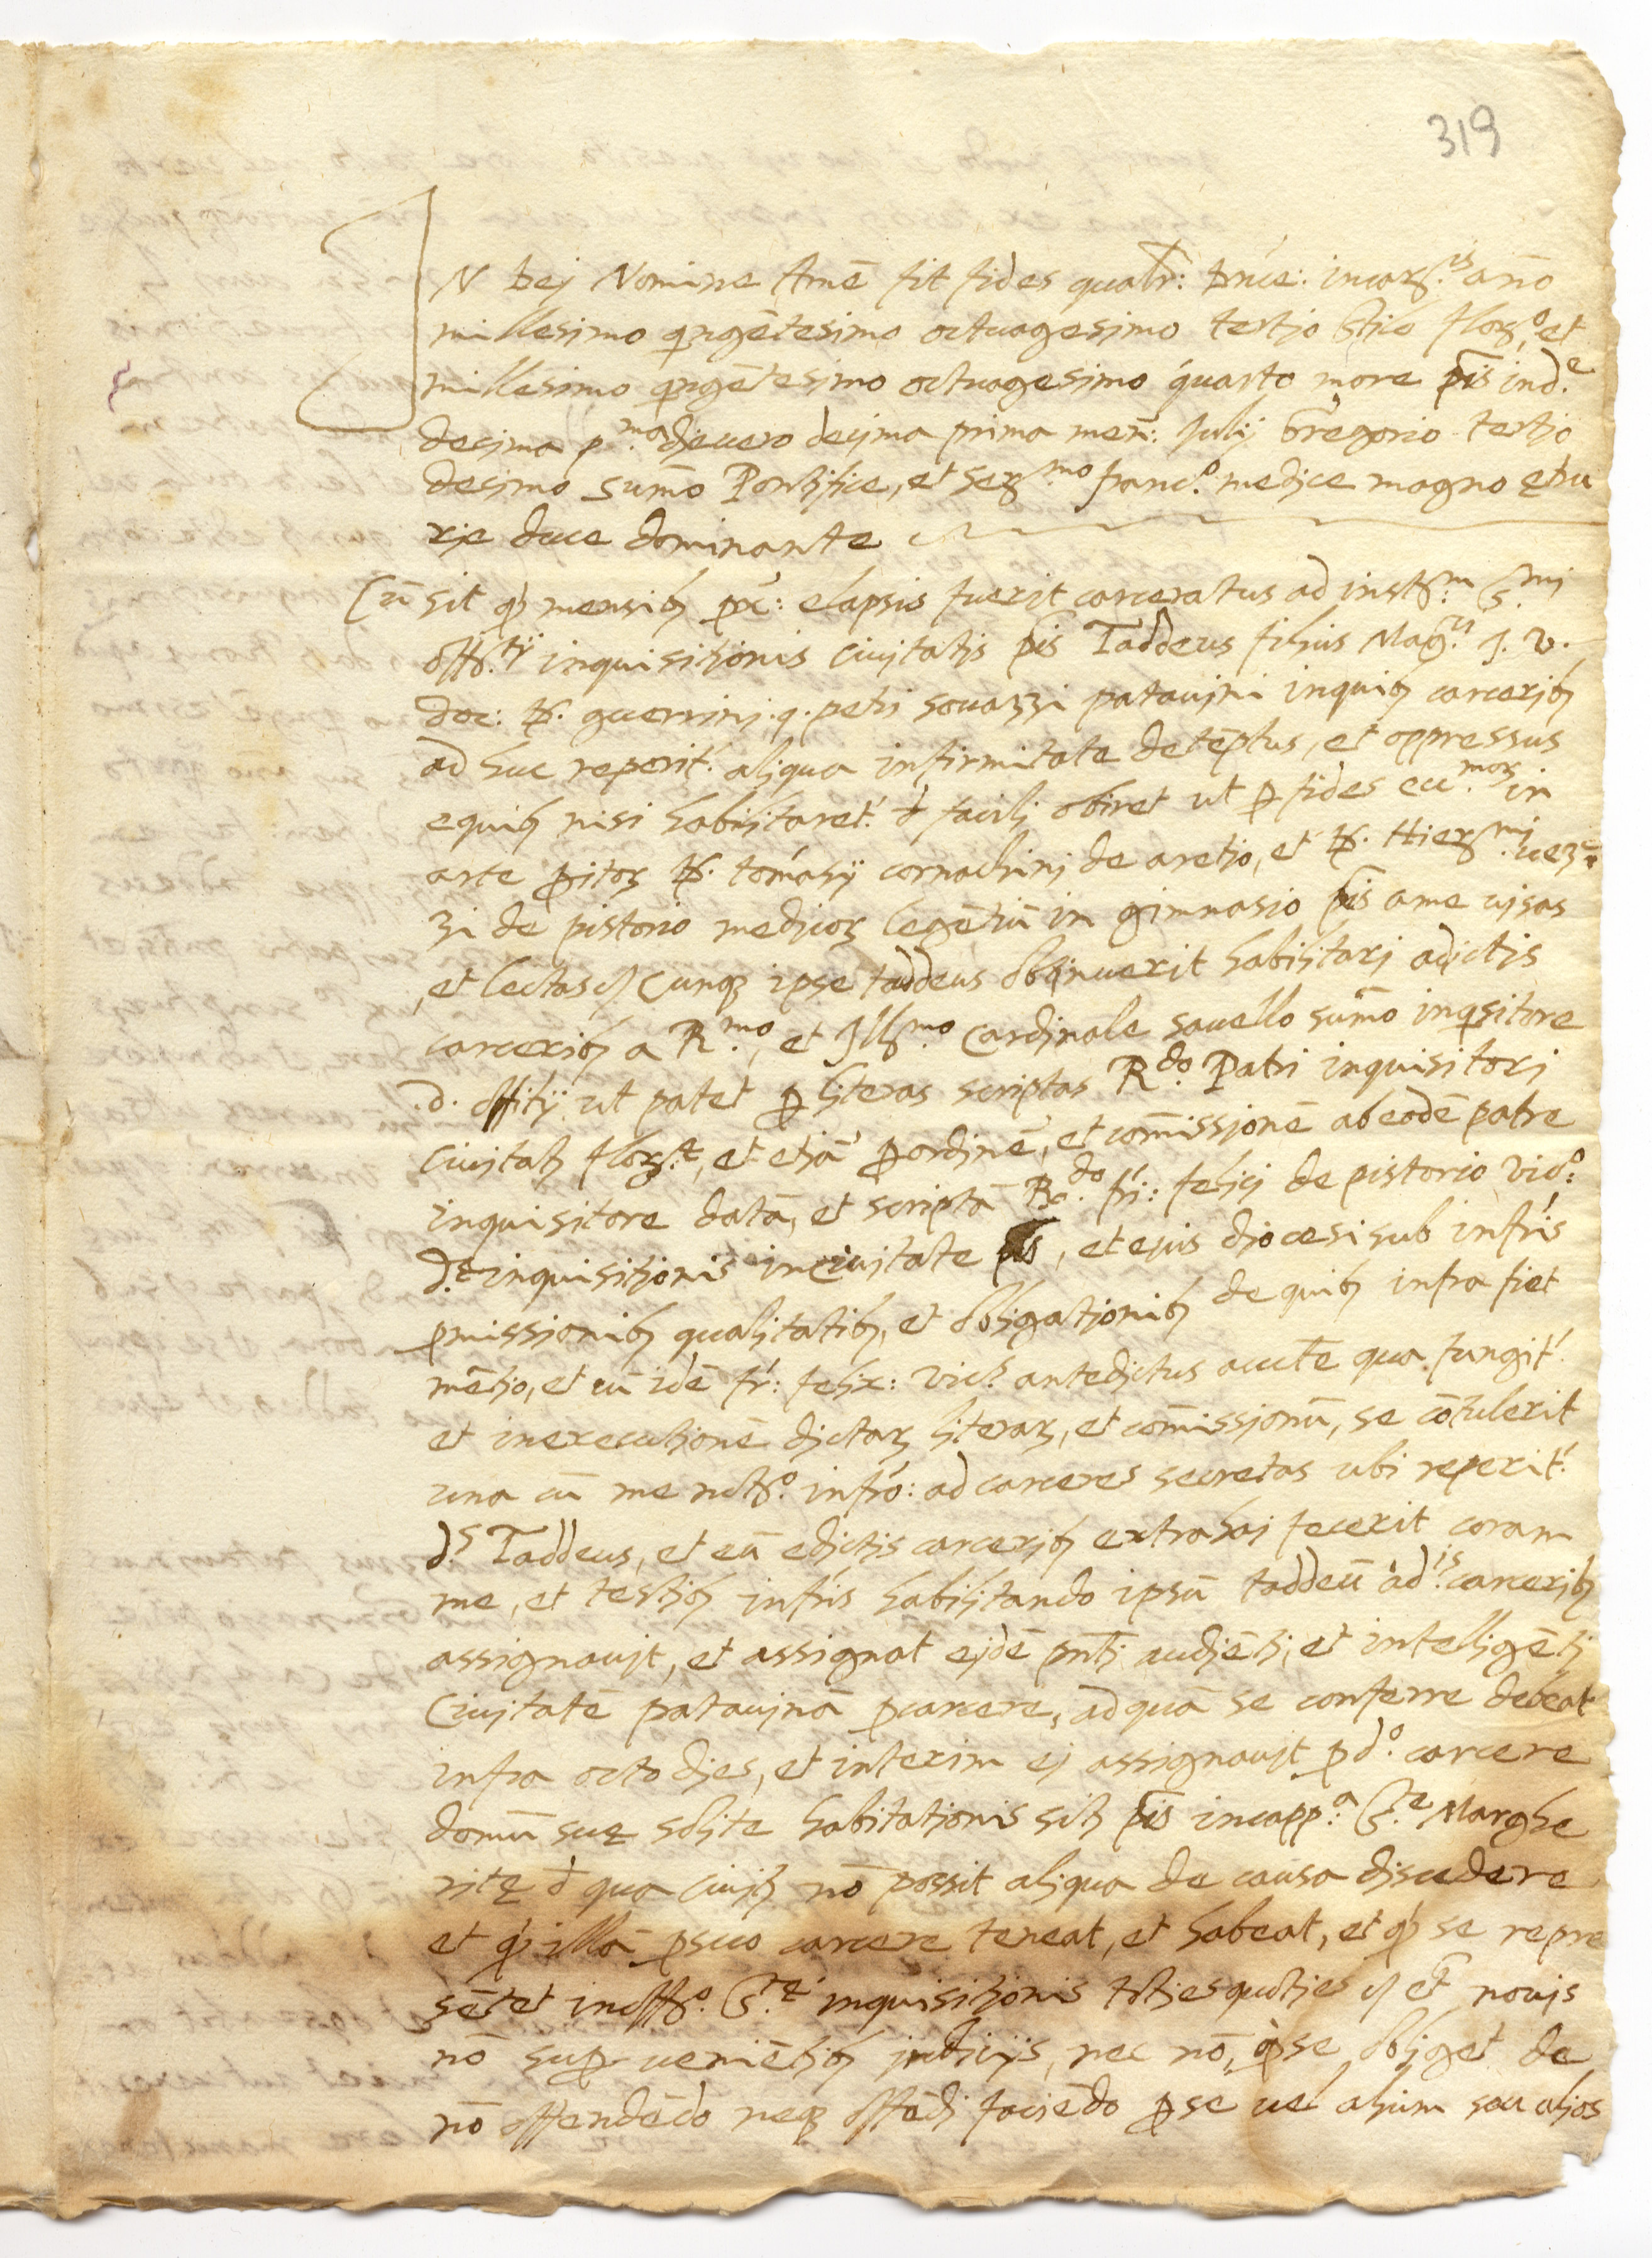 319
IN Dej Nomine Amē fit fides qualr̄: Dn̄ice: incarˢ.ⁱˢ an̄o
millesimo qngētesimo octuagesimo tertjo stilo florⁿᵒ, et
millesimo qngētesimo octuagesimo quarto more pis indᵉ.
decima pᵐᵃ. djevero decjma prima mens̄: Julij Gregorio tertjo
decimo sum̄o Pontifice, et serᵐᵒ francᵒ. medice magno etru
rie duce dominante
Cū sit qꝫ mensibꝫ prox̄: elapsis fuerit carceratus ad instᵐ. Sᵐⁱ
offᵗⁱʲ inquisitjonis ciujtatis pis Taddeus filius Magᶜⁱ. J. V.
doc: D. guerrini. q. petri sovazzi patavjni inquibꝫ carcerjbꝫ
ad huc reperit.̄ aljqua infirmitate detēptus, et oppressus
equibꝫ nisi habiljtaret.̄ d facilj obiret ut ꝑ fides ecc.ᵐᵒʳ in
arte ꝑitoꝝ D. tom̄asij cornachinj de aretjo, et D. Hierᵐⁱ. verz
zi de pistorio medjcoꝝ legētiū in gimnasio pis ame vjsas
, et lectas Cunqꝫ ipse taddeus obtinuerit habiljtarj adictis
carceribꝫ a Rᵐᵒ, et Jllᵐᵒ Cardjnale savello sum̄o inqsitore
.d. offitij ut patet ꝑ ljteras scriptas Rᵈᵒ. Patri inquisitorj
Ciujtatꝭ florᵉ, et etjā ꝑordjnē, et com̄issjonē abeodē patre
inquisitore datā, et scriptā Rᵈᵒ. fr̄i: felicj de pistorio vicᵒ:
dᵉ inquisitjonis inciujtate pis, et ejus djocesi sub infr̄is
pmissionibꝫ qualjtatibꝫ, et obljgatjonibꝫ de quibꝫ infra fiet
mētjo, et cū idē fr̄: feljx: vicꝰ antedjctus auctē qua fungit.̄
et inexecutjonē djctaꝝ ljteraꝝ, et com̄issjonū, se cōtulerit
una cū me notᵒ. infrō: ad carceres secretas ubi reperit.̄
dˢ. Taddeus, et eū edjctjs carcerjbꝫ extrahj fecerit coram
me, et testjbꝫ infr̄is habiljtando ipsū taddeū adⁱˢ. carceribꝫ
assignavjt, et assignat ejdē pn̄tj audjētj, et intelljgētj
Ciujtatē patavjnā ꝑcarcere, adquā se conferre debeat
infra octo djes, et interim ej assignavjt ꝑdᵒ. carcere
domū sue soljte habitatjonis sitꝭ pis incappᵃ. Sᵗᵉ Marghe
rite d qua Ciujtꝭ nō possit aljqua de causa djscedere
et qꝫ illā ꝑsuo carcere teneat, et habeat, et qꝫ se repre
sētet inoffᵒ. Sᵗᵉ inquisitjonis totjesquotjes et novjs
nō suꝑ venjētjbꝫ indicijs, nec nō, qꝫse obljget de
nō offendēdo neqꝫ offēdj faciēdo ꝑse vel alium seu aljos